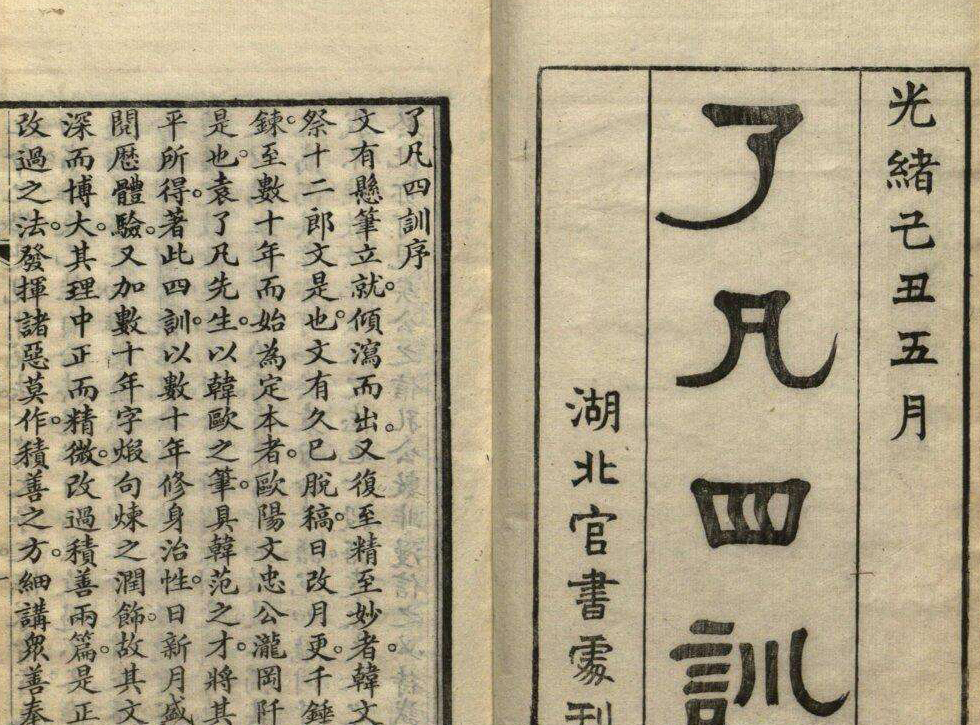 光緒己丑五月
了凡四訓
湖北官書處刊
了凡四訓序
文有懸筆立就。傾瀉而出。又復至精至妙者。韓文
祭十二郎文是也。文有久已脫稿。日改月更。千錘
鍊。至數十年而始為定本者。歐陽文忠公瀧岡阡
是也。袁了凡先生。以韓歐之筆。具韓范之才。將其
平所得。著此四訓。以數十年修身治性。日新月盛
閱歷體驗。又加數十年字煆句煉之潤飾。故其文
深而博大。其理中正而精微。改過積善兩篇。是正
改過之法。發揮諸惡莫作。積善之方。細講衆善奉